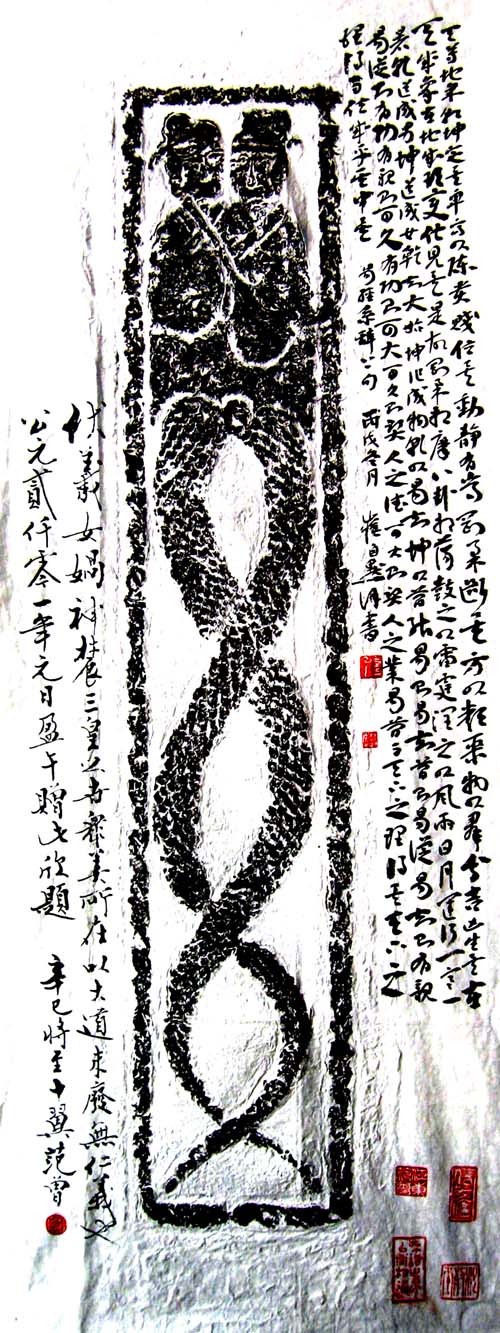 天尊地卑乾坤定矣卑高以陳貴賤位矣動靜有常剛柔斷矣方以類聚物以羣分吉凶生矣在
天成象在地成形變化見矣是故剛柔相摩八卦相蕩鼓之以雷霆潤之以風雨日月運行一寒一
暑乾道成男坤道成女乾知大始坤作成物乾以易知坤以簡能易則易知簡則易從易知則有親
易從則有功有親則可久有功則可大可久則賢人之德可大則賢人之業易簡而天下之理得矣天下之
理得而成位乎其中矣 易經系辭句 丙戌冬月 崔自默書
伏羲女媧神農三皇美所在以大道未廢無仁義也
公元貳仟零一年元日盈午贈此欣題 辛巳將至十翼范曾